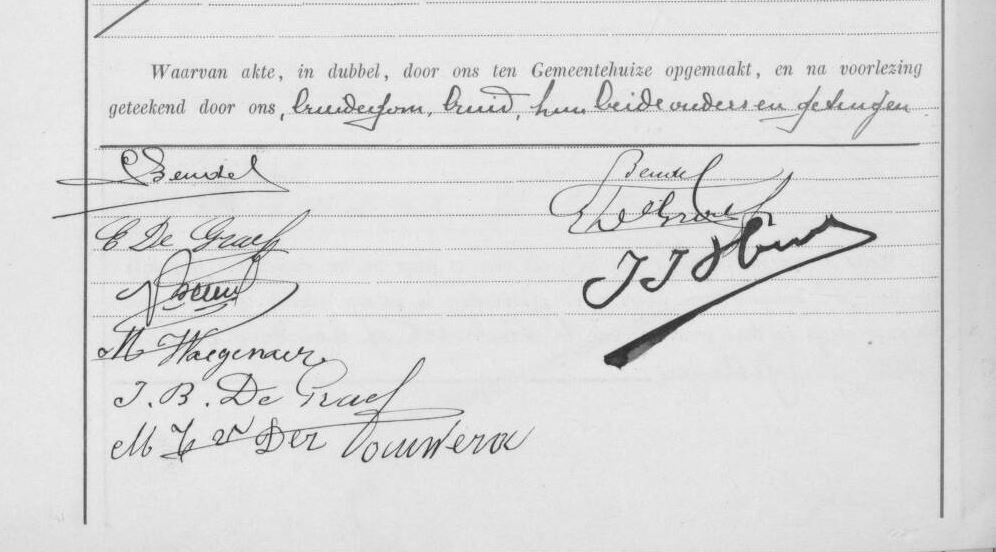 Waarvan akte, in dubbel, door ons ten Gemeentehuize opgemaakt, en na voorlezing
geteekend door ons, bruidegom, bruid, hun beide ouders en getuigen
Beudel
E De Graef
M Waegenaer
J. B. De Graef
M Van Der
Beudel
De Graef
J J